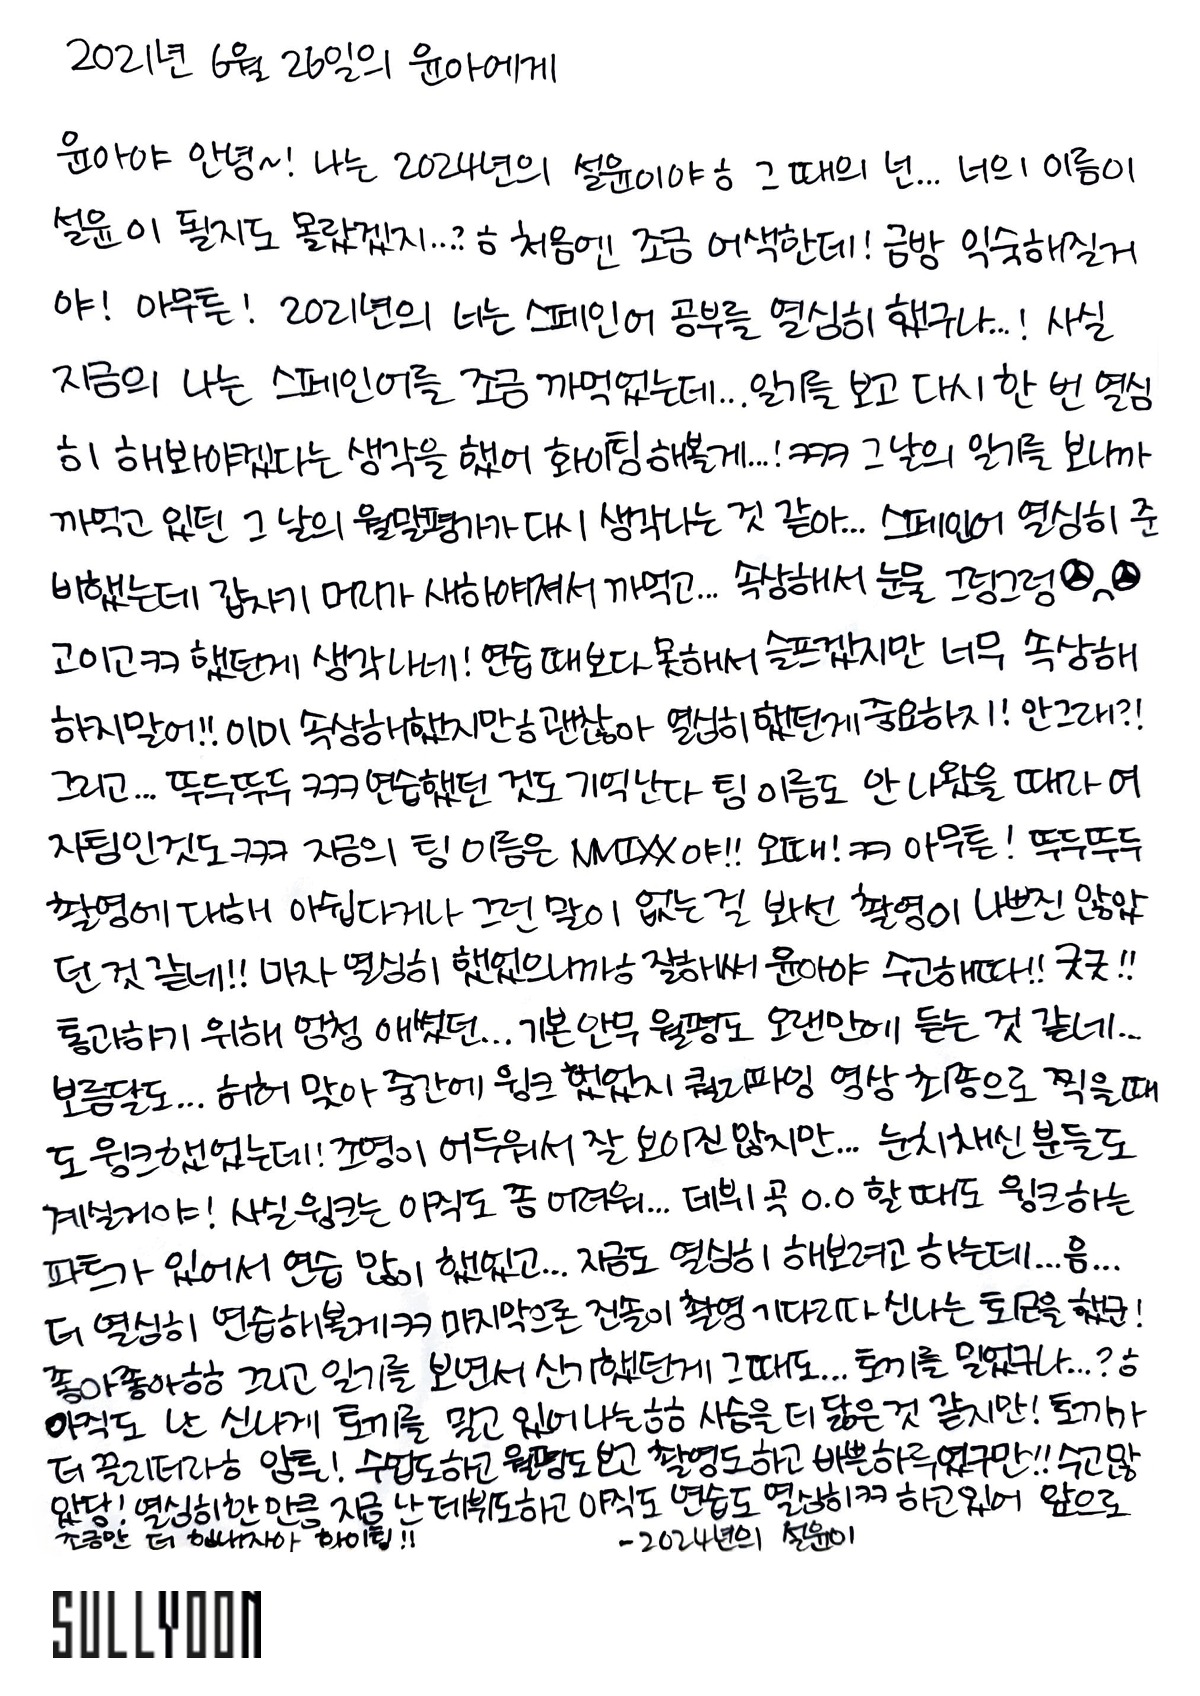 2021년 6월 26일의 윤아에게
윤아야 안녕~! 나는 2024년의 설윤이야ㅎ 그 때의 넌... 너의 이름이
설윤이 될지도 몰랐겠지...? ㅎ 처음엔 조금 어색한데! 금방 익숙해질거
야! 아무튼! 2021년의 너는 스페인어 공부를 열심히 했구나...! 사실
지금의 나는 스페인어를 조금 까먹었는데... 일기를 보고 다시 한 번 열심
히 해봐야겠다는 생각을 했어 화이팅해볼게...! ㅋㅋㅋ 그 날의 일기를 보니까
까먹고 있던 그 날의 월말평가가 다시 생각나는 것 같아... 스페인어 열심히 준
비했는데 갑자기 머리가 새하야져서 까먹고... 속상해서 눈물 그렁그렁
고이고ㅋㅋ 했던게 생각나네! 연습 때보다 못해서 슬프겠지만 너무 속상해
하지말어!! 이미 속상해했지만ㅎ 괜찮아 열심히 했던게 중요하지! 안그래?!
그리고... 뚜두뚜두 ㅋㅋㅋ 연습했던 것도 기억난다 팀 이름도 안 나왔을 때라 여
자팀인것도ㅋㅋㅋ 지금의 팀 이름은 NMIXX야!! 오때! ㅋㅋ 아무튼! 뚜두뚜두
촬영에 대해 아쉽다거나 그런 말이 없는걸 봐선 촬영이 나쁘진 않았
던 것 같네!! 마자 열심히 했었으니까ㅎ 잘해써 윤아야 수고해따!! 굿굿!!
통과하기 위해 엄청 애썼던... 기본안무 월평도 오랜만에 듣는 것 같네...
보름달도... 허허 맞아 중간에 윙크 했었지 퀄리파잉 영상 최종으로 찍을때
도 윙크했었는데! 조명이 어두워서 잘 보이진 않지만... 눈치채신 분들도
계실거야! 사실 윙크는 아직도 좀 어려워... 데뷔곡 O.O 할 때도 윙크하는
파트가 있어서 연습 많이 했었고... 지금도 열심히 해보려고 하는데...음...
더 열심히 연습해볼게ㅋㅋ 마지막으론 진솔이 촬영 기다리다 신나는 토론을 했군!
좋아좋아ㅎㅎ 그리고 일기를 보면서 신기했던게 그때도... 토끼를 밀었구나...? ㅎ
아직도 난 신나게 토끼를 밀고 있어 나는ㅎㅎ 사슴을 더 닮은것 같지만! 토끼가
더 끌리더라ㅎ 암튼! 수업도하고 월평도보고 촬영도하고 바쁜하루였구만!! 수고많
았당! 열심히한 만큼 지금 난 데뷔도하고 아직도 연습도 열심히ㅋㅋ 하고있어 앞으로
조금만 더 힘내자아 화이팅!! -2024년의 설윤이
SULLYOON